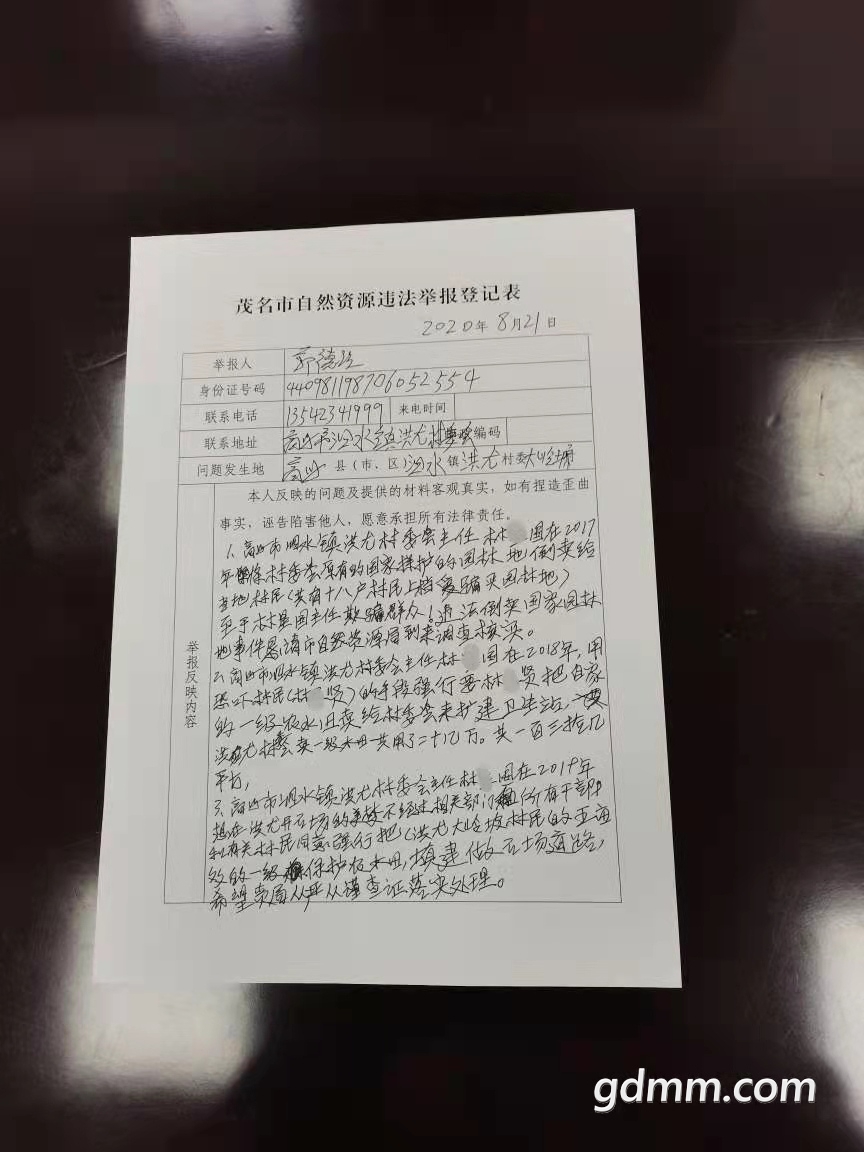 茂名市自然资源违法举报登记表
2020年 8月21日
举报人
身份证号码 440981198706052554
联系电话 13542341999 来电时间
联系地址 高州市泗水镇洪尤村委 编码
问题发生地 高州 县(市、区)泗水镇洪尤村委大岭坡
举报反映内容
本人反映的问题及提供的材料客观真实,如有捏造歪曲
事实,诬告陷害他人,愿意承担所有法律责任。
1、高州市泗水镇洪尤村委会主任林 国在2017
年 村委会原有的国家保护的园林地倒卖给
当地村民(共有十八户村民上档 骗买园林地)
至于林某国主任欺骗群众!违法倒卖国家园林
地事件恳请市自然资源局到来调查核实。
2、高州市泗水镇洪尤村委会主任林 国在2018年,用
恐吓村民(林 贤)的手段强行要林 贤把自家
的一级农水田卖给村委会来扩建卫生站,
洪尤村委会卖一级水田共用了二十几万。共一百三拾几
平方,
3、高州市泗水镇洪尤村委会主任林 国在2019年
想在洪尤开石场的 不经过相关部门 所有干部
和有关村民同意强行把(洪尤大岭坡村民的
处的一级 保护农水田,填建做石场道路,
希望贵局从严从谨查证落实处理。
gdmm.com